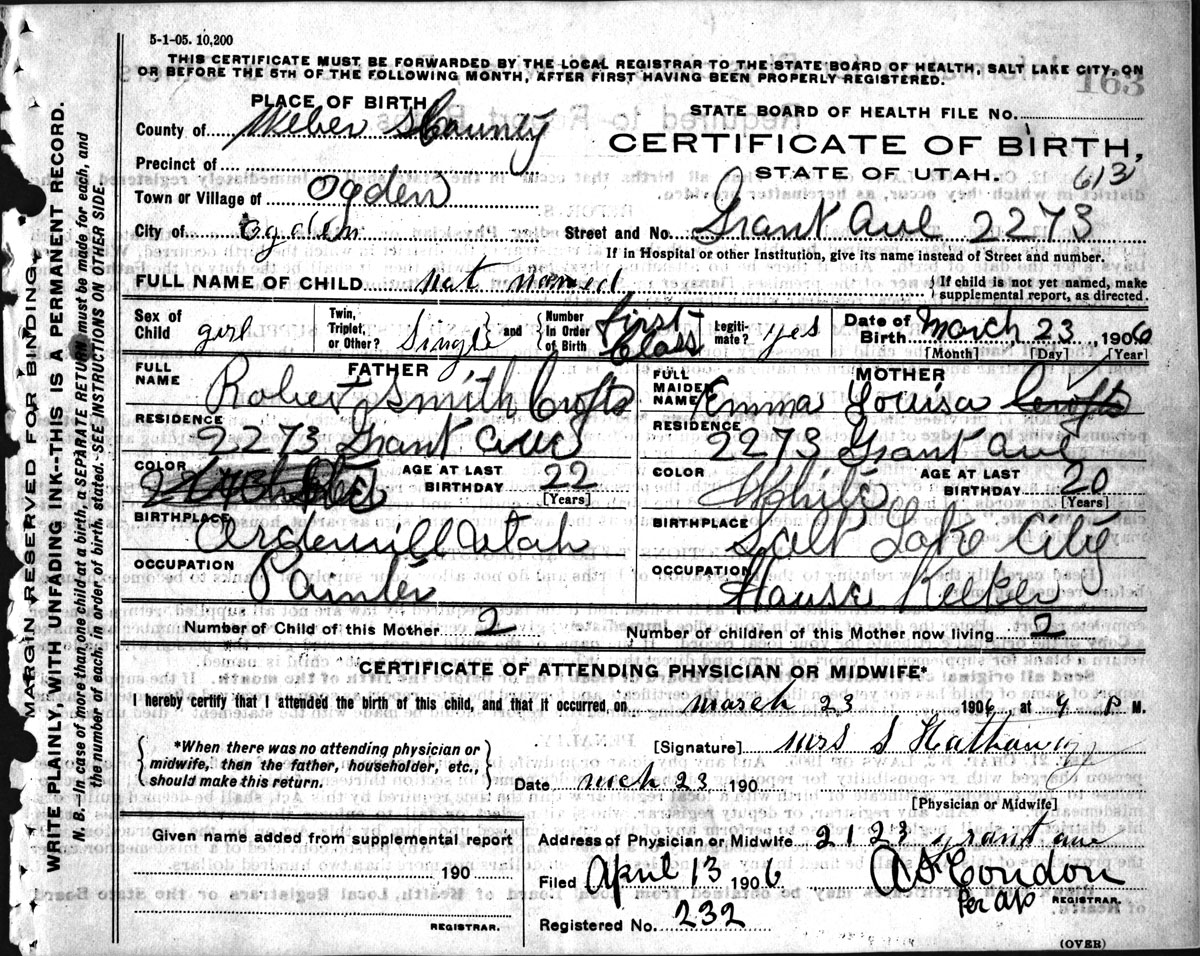 5-1-05. 10,200
THIS CERTIFICATE MUST BE FORWARDED BY THE LOCAL REGISTRAR TO THE STATE BOARD OF HEALTH, SALT LAKE CITY, ON
OR BEFORE THE 5TH OF THE FOLLOWING MONTH, AFTER FIRST HAVING BEEN PROPERLY REGISTERED.
163
PLACE OF BIRTH
County of Weber County
Precinct of
Town or Village of Ogden
City of Ogden
STATE BOARD OF HEALTH FILE No.
CERTIFICATE OF BIRTH,
STATE OF UTAH. 613
Street and No. Grant Ave 2273
If in Hospital or other Institution, give its name instead of Street and number.
FULL NAME OF CHILD not named
If child is not yet named, make
supplemental report, as directed.
Sex of Child girl
Twin, Triplet, or Other? Single and Number In Order of Birth First Class
Legiti- mate? yes
Date of Birth March 23 1906
[Month] [Day] [Year]
FATHER
FULL NAME Robert Smith Crofts
RESIDENCE 2273 Grant Ave
COLOR
AGE AT LAST BIRTHDAY 22
[Years]
BIRTHPLACE Ordervill Utah
OCCUPATION Painter
MOTHER
FULL MAIDEN NAME Emma Louisa Crofts
RESIDENCE 2273 Grant Ave
COLOR White
AGE AT LAST BIRTHDAY 20
[Years]
BIRTHPLACE Salt Lake City
OCCUPATION House Keeker
Number of Child of this Mother 2
Number of children of this Mother now living 2
CERTIFICATE OF ATTENDING PHYSICIAN OR MIDWIFE*
I hereby certify that I attended the birth of this child, and that it occurred, on march 23 1906 at 9 P M.
*When there was no attending physician or
midwife, then the father, householder, etc.,
should make this return.
[Signature] Mrs S Hathaway
Date mch 23 190
[Physician or Midwife]
Given name added from supplemental report
190
REGISTRAR.
Address of Physician or Midwife 2123 grant ave
Filed April 13 1906
A S Condon
Per
REGISTRAR.
Registered No. 232
(OVER)
MARGIN RESERVED FOR BINDING.
WRITE PLAINLY, WITH UNFADING INK--THIS IS A PERMANENT RECORD.
N. B.--In case of more than one child at a birth, a SEPARATE RETURN must be made for each, and
the number of each, in order of birth, stated. SEE INSTRUCTIONS ON OTHER SIDE.